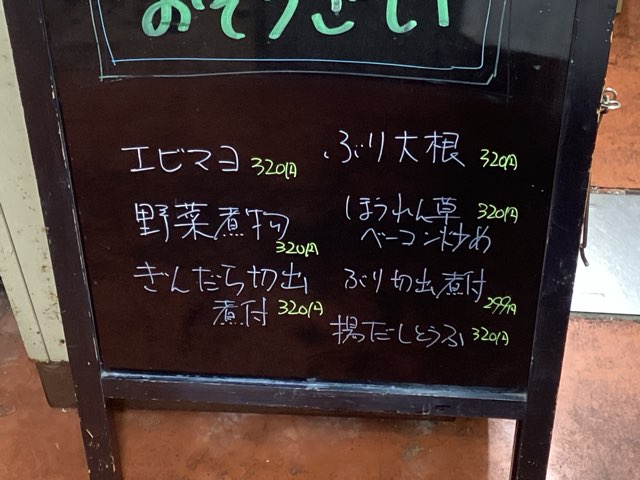 おそうざい
エビマヨ 320円
野菜煮物
320円
ぎんだら切出
煮付 320円
ぶり大根 320円
ほうれん草 320円
ベーコン炒め
ぶり切出煮付
299円
揚だしとうふ 320円